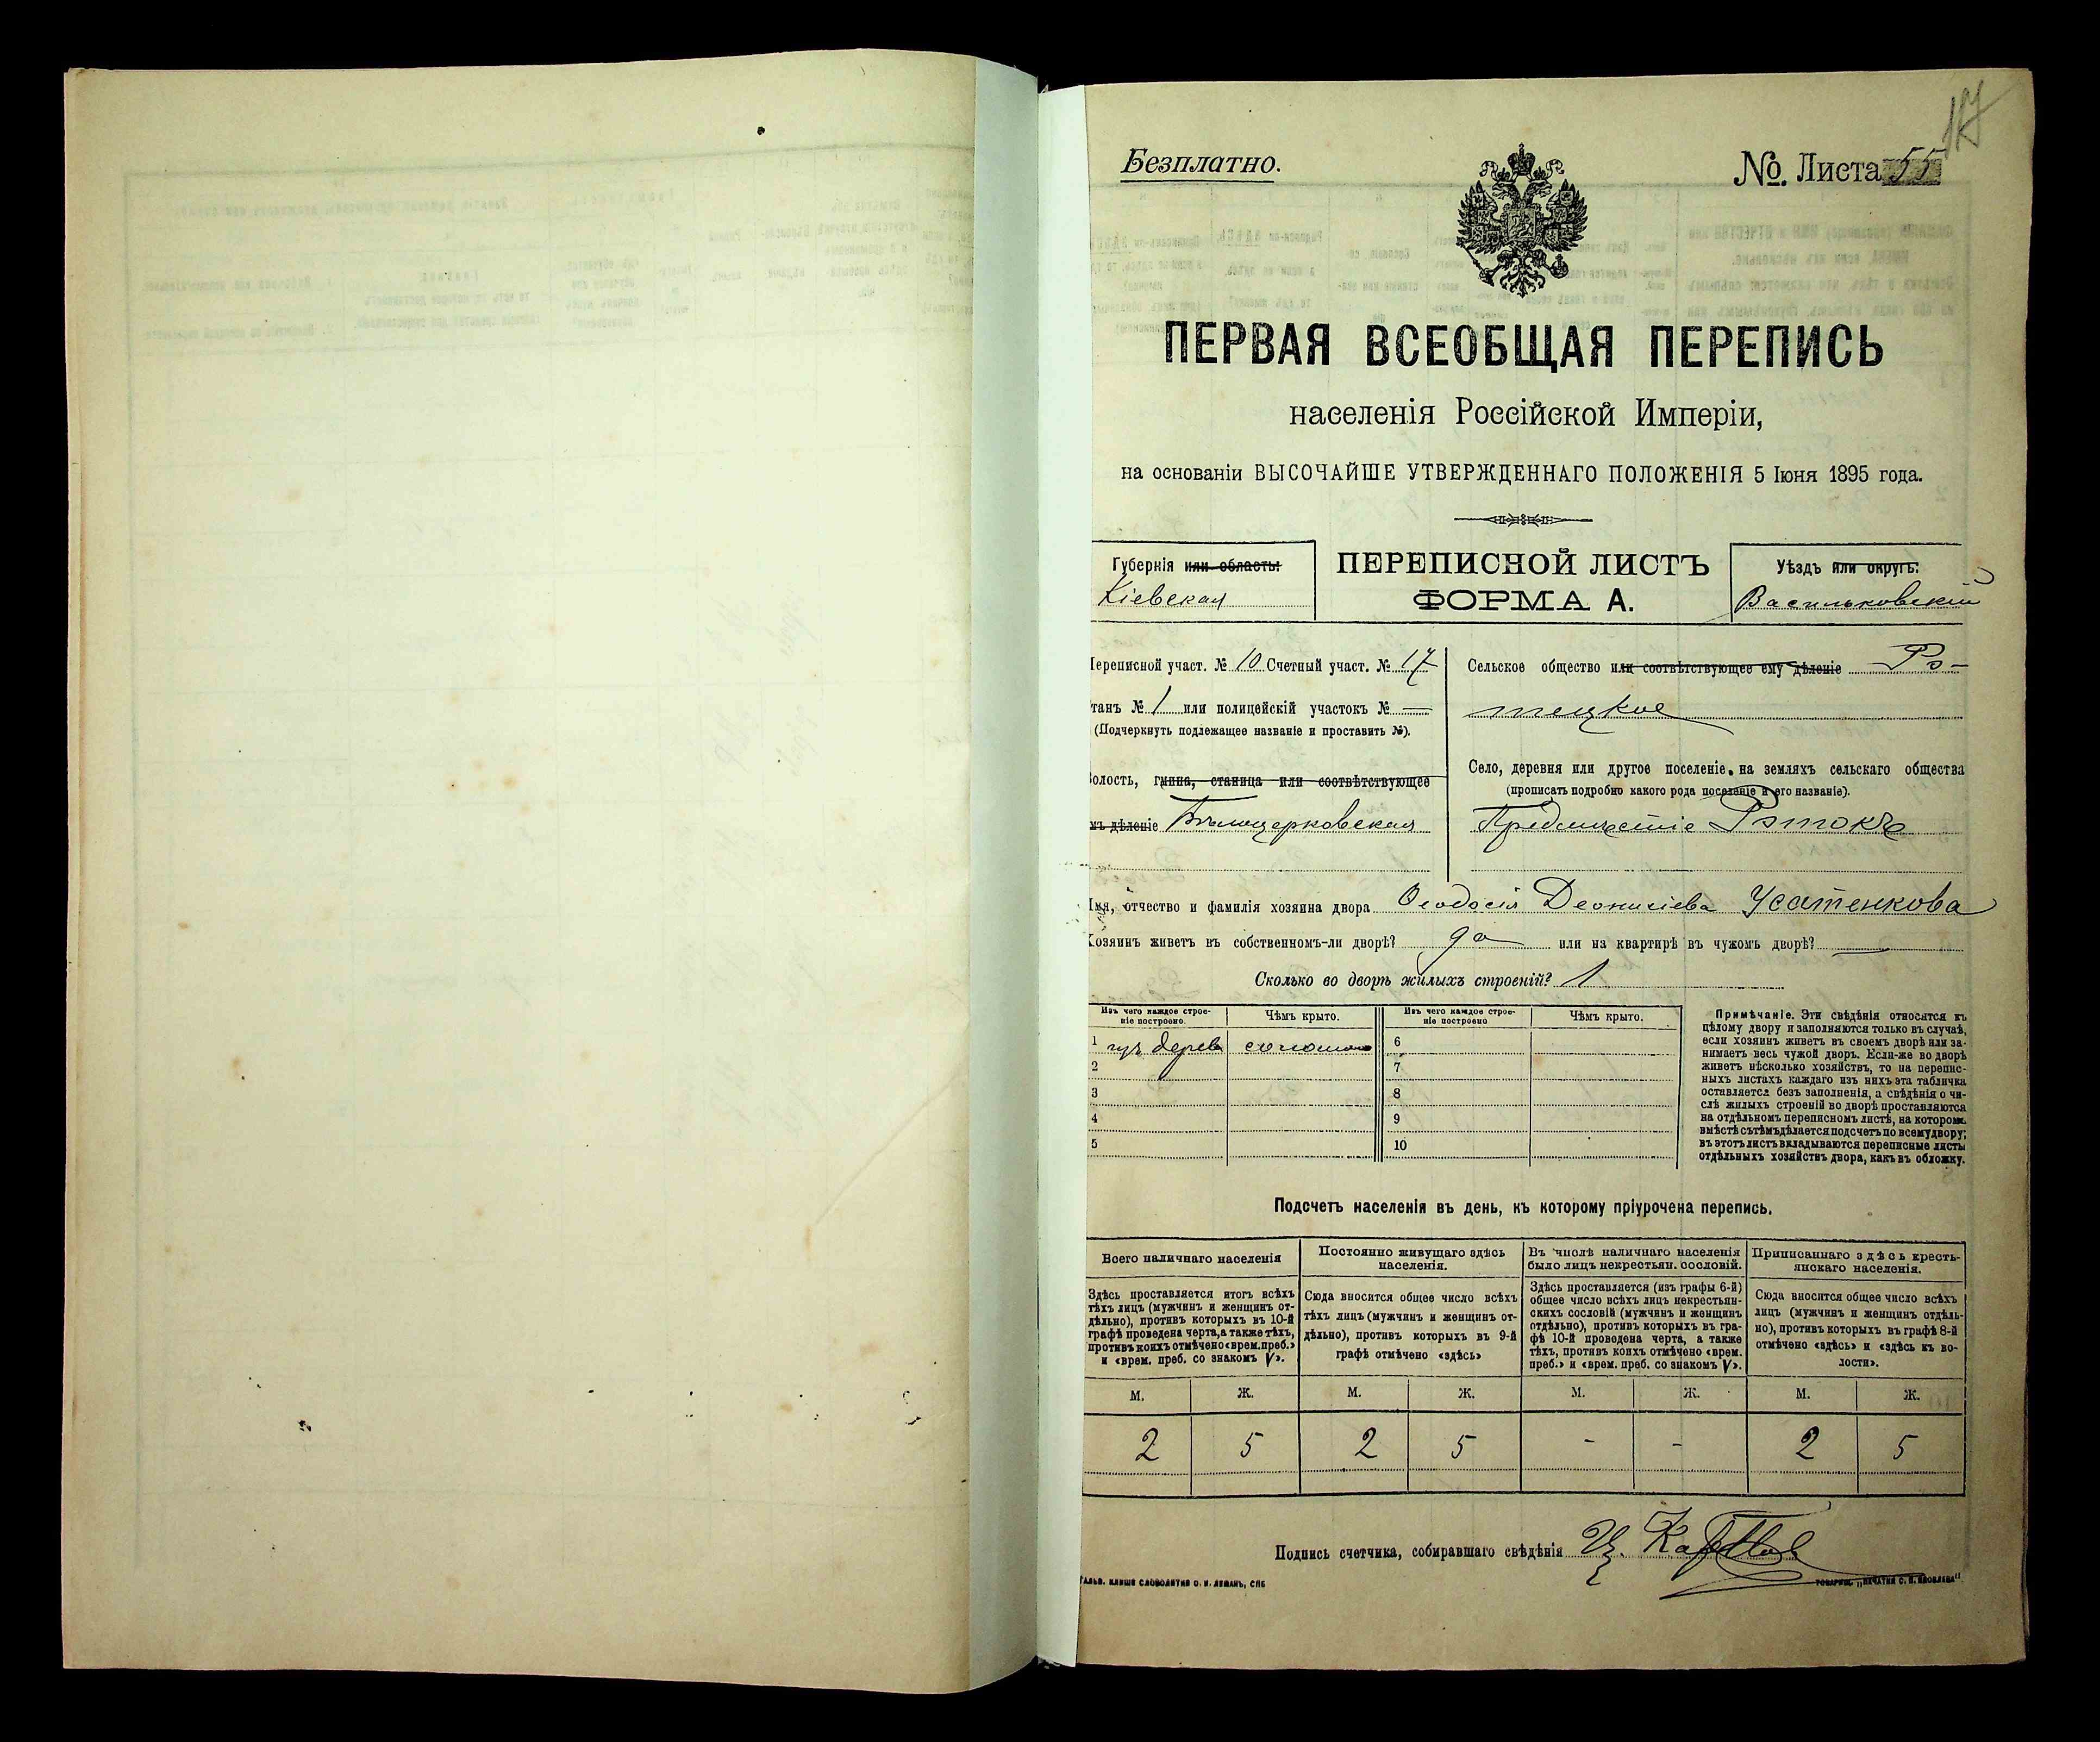 17
Безплатно.
№ Листа 55
ПЕРВАЯ ВСЕОБЩАЯ ПЕРЕПИСЬ
населенія Россійской Имперіи,
на основаніи ВЫСОЧАЙШЕ УТВЕРЖДЕННАГО ПОЛОЖЕНІЯ 5 Іюня 1895 года.
Губернія или область:
Кіевская
ПЕРЕПИСНОЙ ЛИСТЪ
ФОРМА А.
Уѣздъ или округъ:
Васильковскій
Переписной участ. № 10 Счетный участ. № 17
танъ № 1 или полицейскій участокъ № —
(Подчеркнуть подлежащее названіе и проставить №).
Волость, гмина, станица или соотвѣтствующее
мъ дѣленіе Бѣлоцерковская
Сельское общество или соотвѣтствующее ему дѣленіе Ро-
тецкое
Село, деревня или другое поселеніе на земляхъ сельскаго общества
(прописать подробно какого рода поселеніе и его названіе).
Предмѣстіе Ротокъ
Имя, отчество и фамилія хозяина двора Ѳеодосія Деонисіева Усатенкова
Хозяинъ живетъ въ собственномъ-ли дворѣ? да или на квартирѣ въ чужомъ дворѣ? —
Сколько во дворѣ жилыхъ строеній? 1
Изъ чего каждое строе-
ніе построено.
Чѣмъ крыто.
Изъ чего каждое строе-
ніе построено
Чѣмъ крыто.
1 изъ дерева соломою 6
2 7
3 8
4 9
5 10
Примѣчаніе. Эти свѣдѣнія относятся къ
цѣлому двору и заполняются только въ случаѣ,
если хозяинъ живетъ въ своемъ дворѣ или за-
нимаетъ весь чужой дворъ. Если-же во дворѣ
живетъ нѣсколько хозяйствъ, то на перепис-
ныхъ листахъ каждаго изъ нихъ эта табличка
оставляется безъ заполненія, а свѣдѣнія о чи-
слѣ жилыхъ строеній во дворѣ проставляются
на отдѣльномъ переписномъ листѣ, на которомъ
вмѣстѣ съ тѣмъ дѣлается подсчетъ по всему двору;
въ этотъ листъ вкладываются переписные листы
отдѣльныхъ хозяйствъ двора, какъ въ обложку.
Подсчетъ населенія въ день, къ которому пріурочена перепись.
Всего наличнаго населенія
Здѣсь проставляется итогъ всѣхъ
тѣхъ лицъ (мужчинъ и женщинъ от-
дѣльно), противъ которыхъ въ 10-й
графѣ проведена черта, а также тѣхъ,
противъ коихъ отмѣчено «врем. преб.»
и «врем. преб. со знакомъ V».
Постоянно живущаго здѣсь
населенія.
Сюда вносится общее число всѣхъ
тѣхъ лицъ (мужчинъ и женщинъ от-
дѣльно), противъ которыхъ въ 9-й
графѣ отмѣчено «здѣсь»
Въ числѣ наличнаго населенія
было лицъ некрестьян. сословій.
Здѣсь проставляется (изъ графы 6-й)
общее число всѣхъ лицъ некрестьян-
скихъ сословій (мужчинъ и женщинъ
отдѣльно), противъ которыхъ въ гра-
фѣ 10-й проведена черта, а также
тѣхъ, противъ коихъ отмѣчено «врем.
преб.» и «врем. преб. со знакомъ V».
Приписаннаго здѣсь кресть-
янскаго населенія.
Сюда вносится общее число всѣхъ
лицъ (мужчинъ и женщинъ отдѣль-
но), противъ которыхъ въ графѣ 8-й
отмѣчено «здѣсь» и «здѣсь къ во-
лости».
М. Ж. М. Ж. М. Ж. М. Ж.
2 5 2 5 - - 2 5
Подпись счетчика, собиравшаго свѣдѣнія
ГАЛЬВ. КЛИШЕ СЛОВОЛИТНИ О. И. ЛЕМАНЪ, СПБ
ТОВАРИЩ. „ПЕЧАТНЯ С. П. ЯКОВЛЕВА"